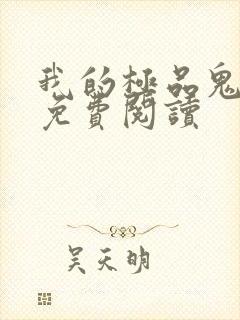 我的極品鬼
免費閱讀
吴天明